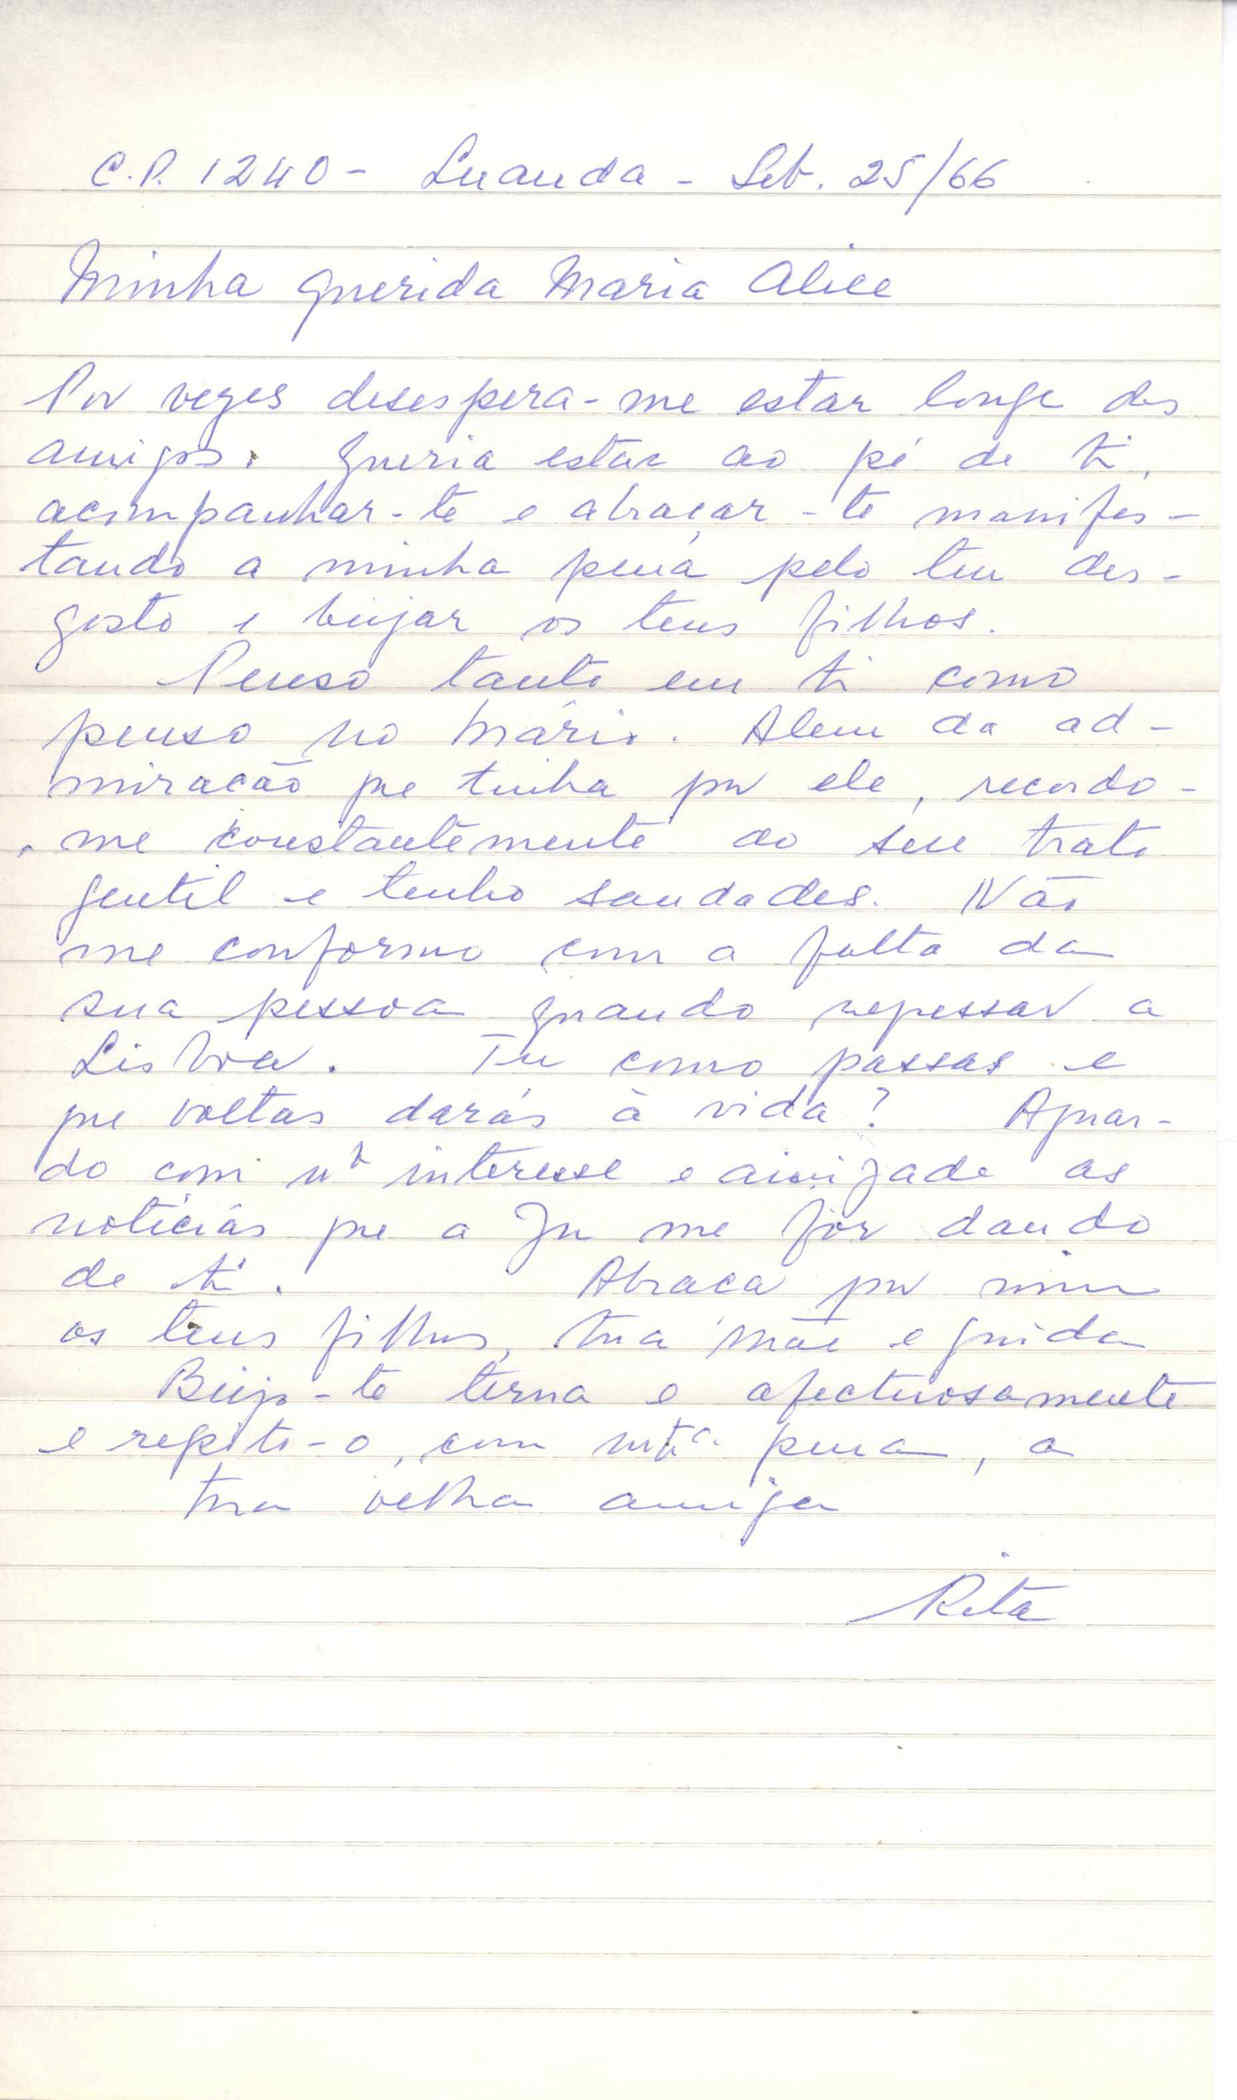 C.P. 1240 - Luanda - Set. 25/66
Minha querida Maria Alice
Por vezes desespera-me estar longe dos
amigos. Queria estar ao pé de ti,
acompanhar-te e abraçar-te manifes-
tando a minha pena pelo teu des-
gosto e beijar os teus filhos.
Penso tanto em ti como
penso no Mário. Alem da ad-
miração que tinha por ele, recordo-
me constantemente do seu trato
gentil e tenho saudades. Não
me conformo com a falta da
sua pessoa quando regressar a
Lisboa. Tu como passas e
que voltas darás à vida? Aguar-
do com interesse e amizade as
notícias que a Ju me for dando
de ti. Abraça por mim
os teus filhos, tua mãe e Guida
Beijo-te terna e afectuosamente
e repito-o, com mta. pena, a
tua velha amiga
Rita